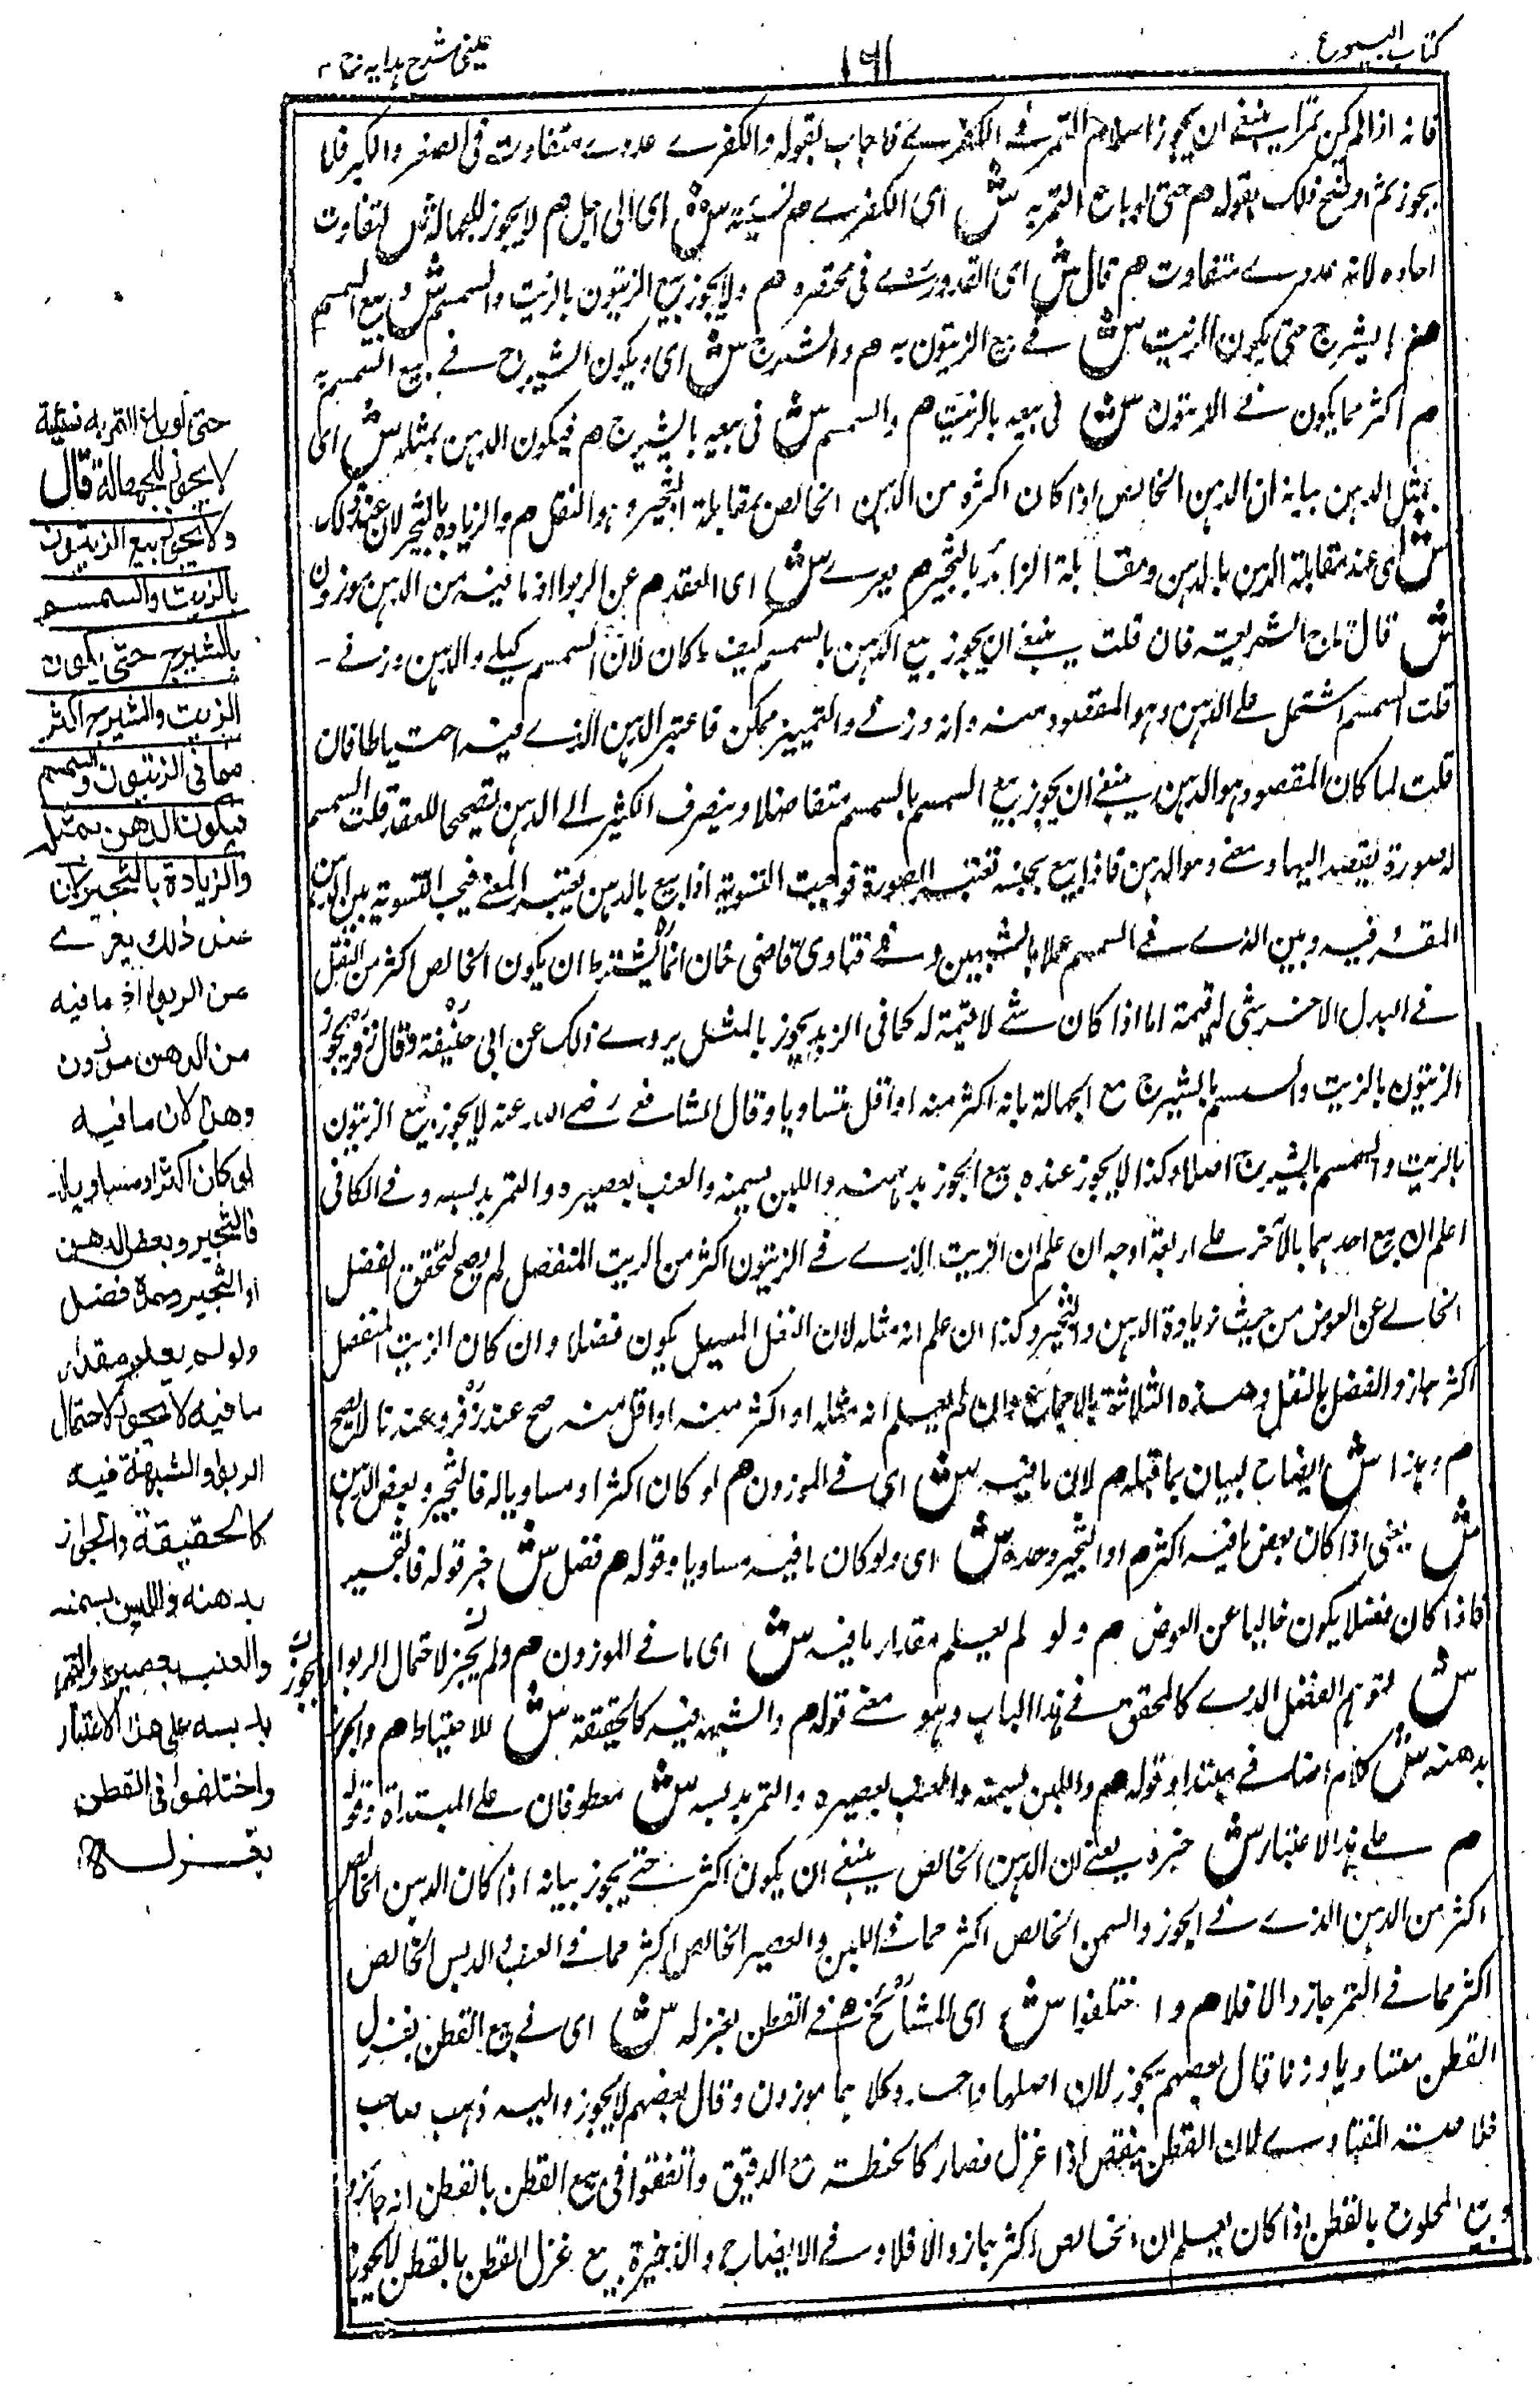 كتاب البيوع
١٦١
عينى شرح هدايه ج ٣
فانه اذا لم يكن تمرا ينبغى ان يجوز اسلام التمر فى الكفرى فاجاب بقوله والكفرى عددى متفاوت فى الصغر والكبر فلا
يجوز ثم اوضح ذلك بقوله هم حتى لو باع التمر به ش اى الكفرى هم نسيئة ش اى الى اجل هم لا يجوز للجهالة ش لتفاوت
احاده لانه عددى متفاوت هم قال ش اى القدورى فى مختصره هم ولا يجوز بيع الزيتون بالزيت والسمسم ش وبيع السمسم
هم بالشيرج حتى يكون الزيت ش فى بيع الزيتون به هم والشيرج ش اى ويكون الشيرج فى بيع السمسم به
هم اكثر مما يكون فى الزيتون ش فى بيعه بالزيت هم والسمسم ش فى بيعه بالشيرج هم فيكون الدهن بمثله ش اى
بمثل الدهن بيانه ان الدهن الخالص اذا كان اكثره من الدهن الخالص بمقابلة الثجير وهو الثفل هم والزيادة بالثجير لان عند ذلك
ش اى عند مقابلة الدهن بالدهن ومقابلة الزائد بالثجير هم يعرى ش اى العقد هم عن الربوا اذ ما فيه من الدهن موزون
ش قال تاج الشريعة فان قلت ينبغى ان يجوز بيع الدهن بالسمسم كيف ما كان لان السمسم كيلى والدهن وزنى
قلت السمسم اشتمل على الدهن وهو المقصود منه وانه وزنى والتمييز ممكن فاعتبر الدهن الذى فيه احتياطا فان
قلت لما كان المقصود هو الدهن ينبغى ان يجوز بيع السمسم بالسمسم متفاضلا وينصرف الكثير الى الدهن تصحيحا للعقد قلت السمسم
له صورة يقصد اليها ومعنى وهو الدهن فاذا بيع بجنسه تعتبر الصورة فوجبت التسوية اذا بيع بالدهن يعتبر المعنى فيجب التسوية بين الدهن
المقر فيه وبين الذى فى السمسم عملا بالشبهين وفى فتاوى قاضى خان انما يشترط ان يكون الخالص اكثر من الثفل
فى البدل الاخر شى له قيمة اما اذا كان شى لا قيمة له كما فى الزبد يجوز بالمثل يروى ذلك عن ابى حنيفة وقال زفر يجوز
الزيتون بالزيت والسمسم بالشيرج مع الجهالة بانه اكثر منه او اقل متساويا وقال الشافعى رضى الله عنه لا يجوز بيع الزيتون
بالزيت والسمسم بالشيرج اصلا وكذا لا يجوز عنده بيع الجوز بدهنه واللبن بسمنه والعنب بعصيره والتمر بدبسه وفى الكافى
اعلم ان بيع احدهما بالآخر على اربعة اوجه ان علم ان الزيت الذى فى الزيتون اكثر من الزيت المنفصل لم يصح لتحقق الفضل
الخالى عن العوض من حيث زيادة الدهن والثجير وكذا ان علم انه مثله لان الثفل يكون فضلا وان كان الزيت المنفصل
اكثر جاز والفضل بالثفل وهذه الثلاثة بالاجماع وان لم يعلم انه مثله او اكثر منه او اقل منه صح عند زفر وعندنا لا يصح
هم وهذا ش ايضاح لبيان ما قبله هم لان ما فيه ش اى فى الموزون هم لو كان اكثر او مساويا له فالثجير وبعض الدهن
ش يعنى اذا كان بعض ما فيه اكثر هم او الثجير وحده ش اى ولو كان ما فيه مساويا وقوله هم فضل ش خبر قوله فالثجير
فاذا كان فضلا يكون خاليا عن العوض هم ولو لم يعلم مقدار ما فيه ش اى ما فى الموزون هم ولم يجز لاحتمال الربوا
ش لتوهم الفضل الذى كالمحقق فى هذا الباب وهو معنى قوله هم والشبهة فيه كالحقيقة ش للاحتياط هم والجوز
بدهنه ش كلام اضافى مبتدا وقوله هم واللبن بسمنه والعنب بعصيره والتمر بدبسه ش معطوفان على المبتداة وقوله
هم على هذا الاعتبار ش خبره يعنى ان الدهن الخالص ينبغى ان يكون اكثر حتى يجوز بيانه اذا كان الدهن الخالص
اكثر من الدهن الذى فى الجوز والسمن الخالص اكثر مما فى اللبن والعصير الخالص اكثر مما فى العنب والدبس الخالص
اكثر مما فى التمر جاز والا فلا هم واختلفوا ش اى المشائخ هم فى القطن بغزله ش اى فى بيع القطن بغزل
القطن متساويا وزنا قال بعضهم يجوز لان اصلهما واحد وكلاهما موزون وقال بعضهم لا يجوز واليه ذهب صاحب
خلاصة الفتاوى لان القطن ينقص اذا غزل فصار كالحنطة مع الدقيق واتفقوا فى بيع القطن بالقطن انه جائز و
وبيع المحلوج بالقطن اذا كان يعلم ان الخالص اكثر جاز والا فلا وفى الايضاح والذخيرة بيع غزل القطن بالقطن لا يجوز
حتى لو باع التمر به نسيئة
لا يجوز للجهالة قال
ولا يجوز بيع الزيتون
بالزيت والسمسم
بالشيرج حتى يكون
الزيت والشيرج اكثر
مما فى الزيتون والسمسم
فيكون الدهن بمثله
والزيادة بالثجير لان
عند ذلك يعرى
عن الربوا اذ ما فيه
من الدهن موزون
وهذا لان ما فيه
لو كان اكثر او مساويا له
فالثجير وبعض الدهن
او الثجير وحده فضل
ولو لم يعلم مقدار
ما فيه لا يجوز لاحتمال
الربوا والشبهة فيه
كالحقيقة والجوز
بدهنه واللبن بسمنه
والعنب بعصيره والتمر
بدبسه على هذا الاعتبار
واختلفوا فى القطن
بغزله